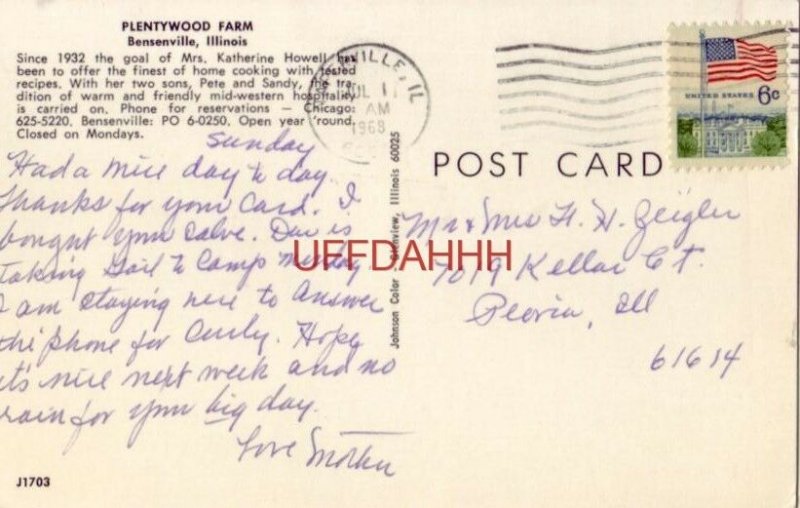 PLENTYWOOD FARM
Bensenville, Illinois
Since 1932 the goal of Mrs. Katherine Howell has
been to offer the finest of home cooking with tested
recipes. With her two sons, Pete and Sandy, the tra-
dition of warm and friendly mid-western hospitality
is carried on. Phone for reservations — Chicago:
625-5220, Bensenville: PO 6-0250. Open year 'round.
Closed on Mondays.
Sunday
Had a nice day to day.
Thanks for your Card. I
bought your salve. Dav is
taking Gail to Camp Monday
I am staying here to answer
the phone for Curly. Hope
its nice next week and no
rain for your big day.
Love Mother
J1703
Johnson Color - Glenview, Illinois 60025
VILLE, IL
JUL 11
AM
1968
UNITED STATES 6c
POST CARD
Mr & Mrs H. H. Zeigler
7019 Kellar Ct.
Peoria, Ill
61614
UFFDAHHH